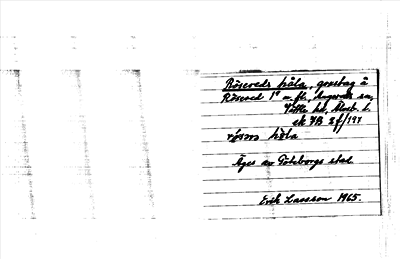 Rösereds höla, gossbag å
Rösered 1⁰ m. fl., Angereds sn,
Vättle hd, Älvsb. l.
ek 7B 2f/197
röſörs höla
Äges av Göteborgs stad.
Erik Larsson 1965.